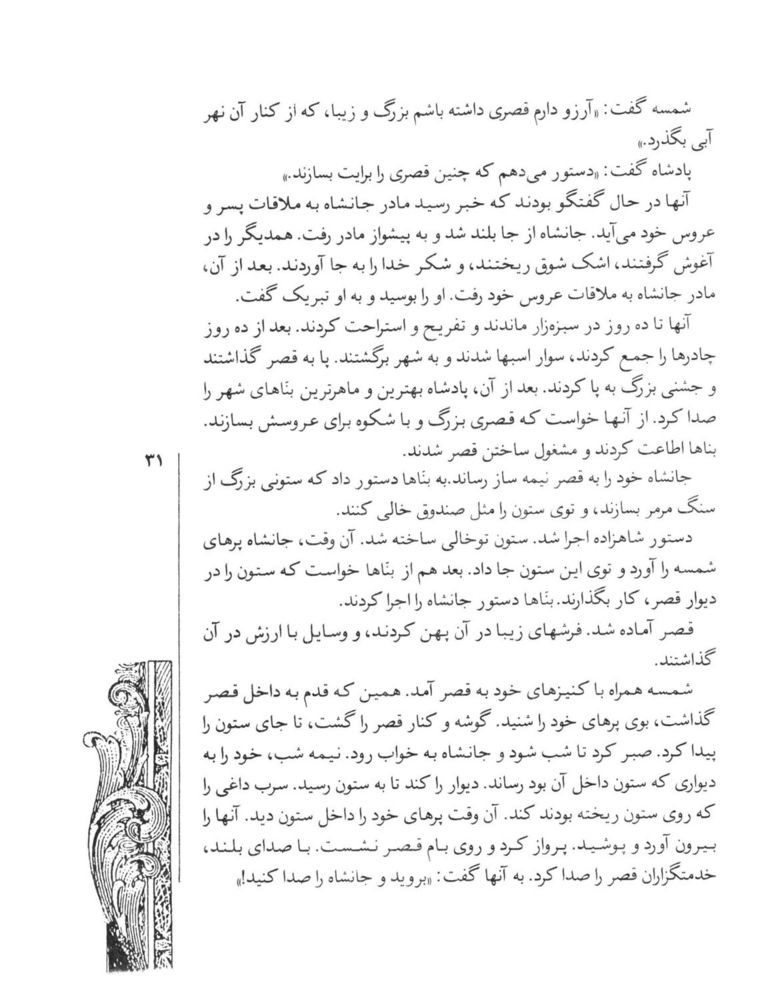 شمسه گفت: «آرزو دارم قصری داشته باشم بزرگ و زیبا، که از کنار آن نهر
آبی بگذرد.»
پادشاه گفت: «دستور می‌دهم که چنین قصری را برایت بسازند.»
آنها در حال گفتگو بودند که خبر رسید مادر جانشاه به ملاقات پسر و
عروس خود می‌آید. جانشاه از جا بلند شد و به پیشواز مادر رفت. همدیگر را در
آغوش گرفتند، اشک شوق ریختند، و شکر خدا را به جا آوردند. بعد از آن،
مادر جانشاه به ملاقات عروس خود رفت. او را بوسید و به او تبریک گفت.
آنها تا ده روز در سبزه‌زار ماندند و تفریح و استراحت کردند. بعد از ده روز
چادرها را جمع کردند، سوار اسبها شدند و به شهر برگشتند. پا به قصر گذاشتند
و جشنی بزرگ به پا کردند. بعد از آن، پادشاه بهترین و ماهرترین بنّاهای شهر را
صدا کرد. از آنها خواست که قصری بزرگ و با شکوه برای عروسش بسازند.
بناها اطاعت کردند و مشغول ساختن قصر شدند.
۳۱
جانشاه خود را به قصر نیمه ساز رساند.به بنّاها دستور داد که ستونی بزرگ از
سنگ مرمر بسازند، و توی ستون را مثل صندوق خالی کنند.
دستور شاهزاده اجرا شد. ستون توخالی ساخته شد. آن وقت، جانشاه پرهای
شمسه را آورد و توی این ستون جا داد. بعد هم از بنّاها خواست که ستون را در
دیوار قصر، کار بگذارند. بنّاها دستور جانشاه را اجرا کردند.
قصر آماده شد. فرشهای زیبا در آن پهن کردند، و وسایل با ارزش در آن
گذاشتند.
شمسه همراه با کنیزهای خود به قصر آمد. همین که قدم به داخل قصر
گذاشت، بوی پرهای خود را شنید. گوشه و کنار قصر را گشت، تا جای ستون را
پیدا کرد. صبر کرد تا شب شود و جانشاه به خواب رود. نیمه شب، خود را به
دیواری که ستون داخل آن بود رساند. دیوار را کند تا به ستون رسید. سرب داغی را
که روی ستون ریخته بودند کند. آن وقت پرهای خود را داخل ستون دید. آنها را
بیرون آورد و پوشید. پرواز کرد و روی بام قصر نشست. با صدای بلند،
خدمتگزاران قصر را صدا کرد. به آنها گفت: «بروید و جانشاه را صدا کنید!»